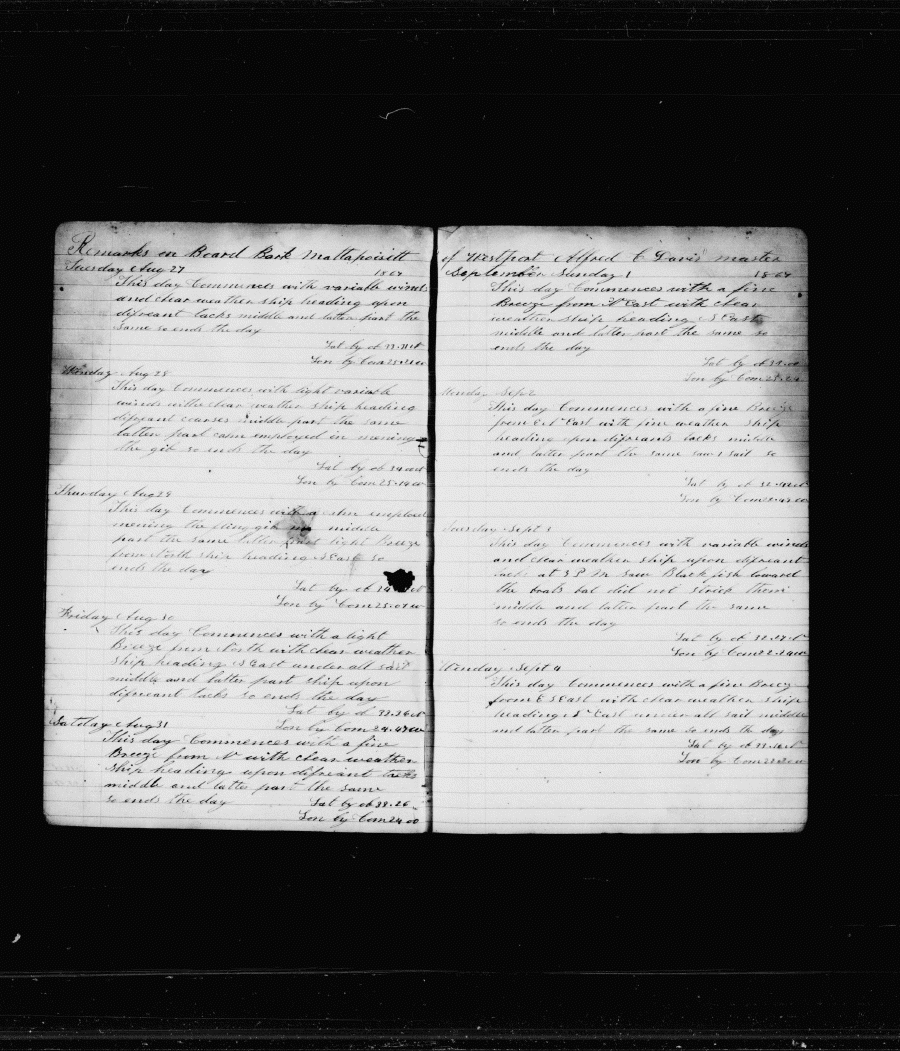 Remarks on Board Bark Mattapoisett
Tuesday Aug 27 1867
This day Commences with variable winds
and clear weather ship heading upon
difreant tacks middle and latter part the
same so ends the day
Lat by ob
Lon by Com
Aug 28
This day Commences with light variable
winds with clear weather ship heading
difreant courses middle part the same
latter part calm employed in mening
the gib so ends the day
Lat by ob 34
Lon by Com 25-14
Thursday Aug 29
This day Commences with a calm employed
mening the fling gib middle
part the same latter part light Breeze
from North ship heading S East so
ends the day
Lat by ob
Lon by Com 25-07 w
Friday Aug 30
This day Commences with a light
Breeze from North with clear weather
ship heading S East under all sail
middle and latter part ship upon
difreant tacks so ends the day
Lat by ob 33-36
Lon by Com 24-47 w
Satday Aug 31
This day Commences with a fine
Breeze from N with clear weather
ship heading upon difreant tacks
middle and latter part the same
so ends the day Lat by ob 33-26
Lon by Com 24 00
of Westport Alfred C Davis master
September Sunday 1 1867
This day Commences with a fine
Breeze from East with clear
weather ship heading S East
middle and latter part the same so
ends the day
Lat by ob
Lon by Com
Monday Sept 2
This day Commences with a fine Breeze
from East with fine weather ship
heading upon difreants tacks middle
and latter part the same saw 1 sail so
ends the day
Lat by ob
Lon by Com
Tuesday Sept 3
This day Commences with variable winds
and clear weather ship upon difreant
tacks at 3 P M saw Black fish loward
the boats but did not strick them
middle and latter part the same
so ends the day
Lat by ob
Lon by Com
Sept 4
This day Commences with a fine Breeze
from E S East with clear weather ship
heading East under all sail middle
and latter part the same so ends the day
Lat by ob
Lon by Com